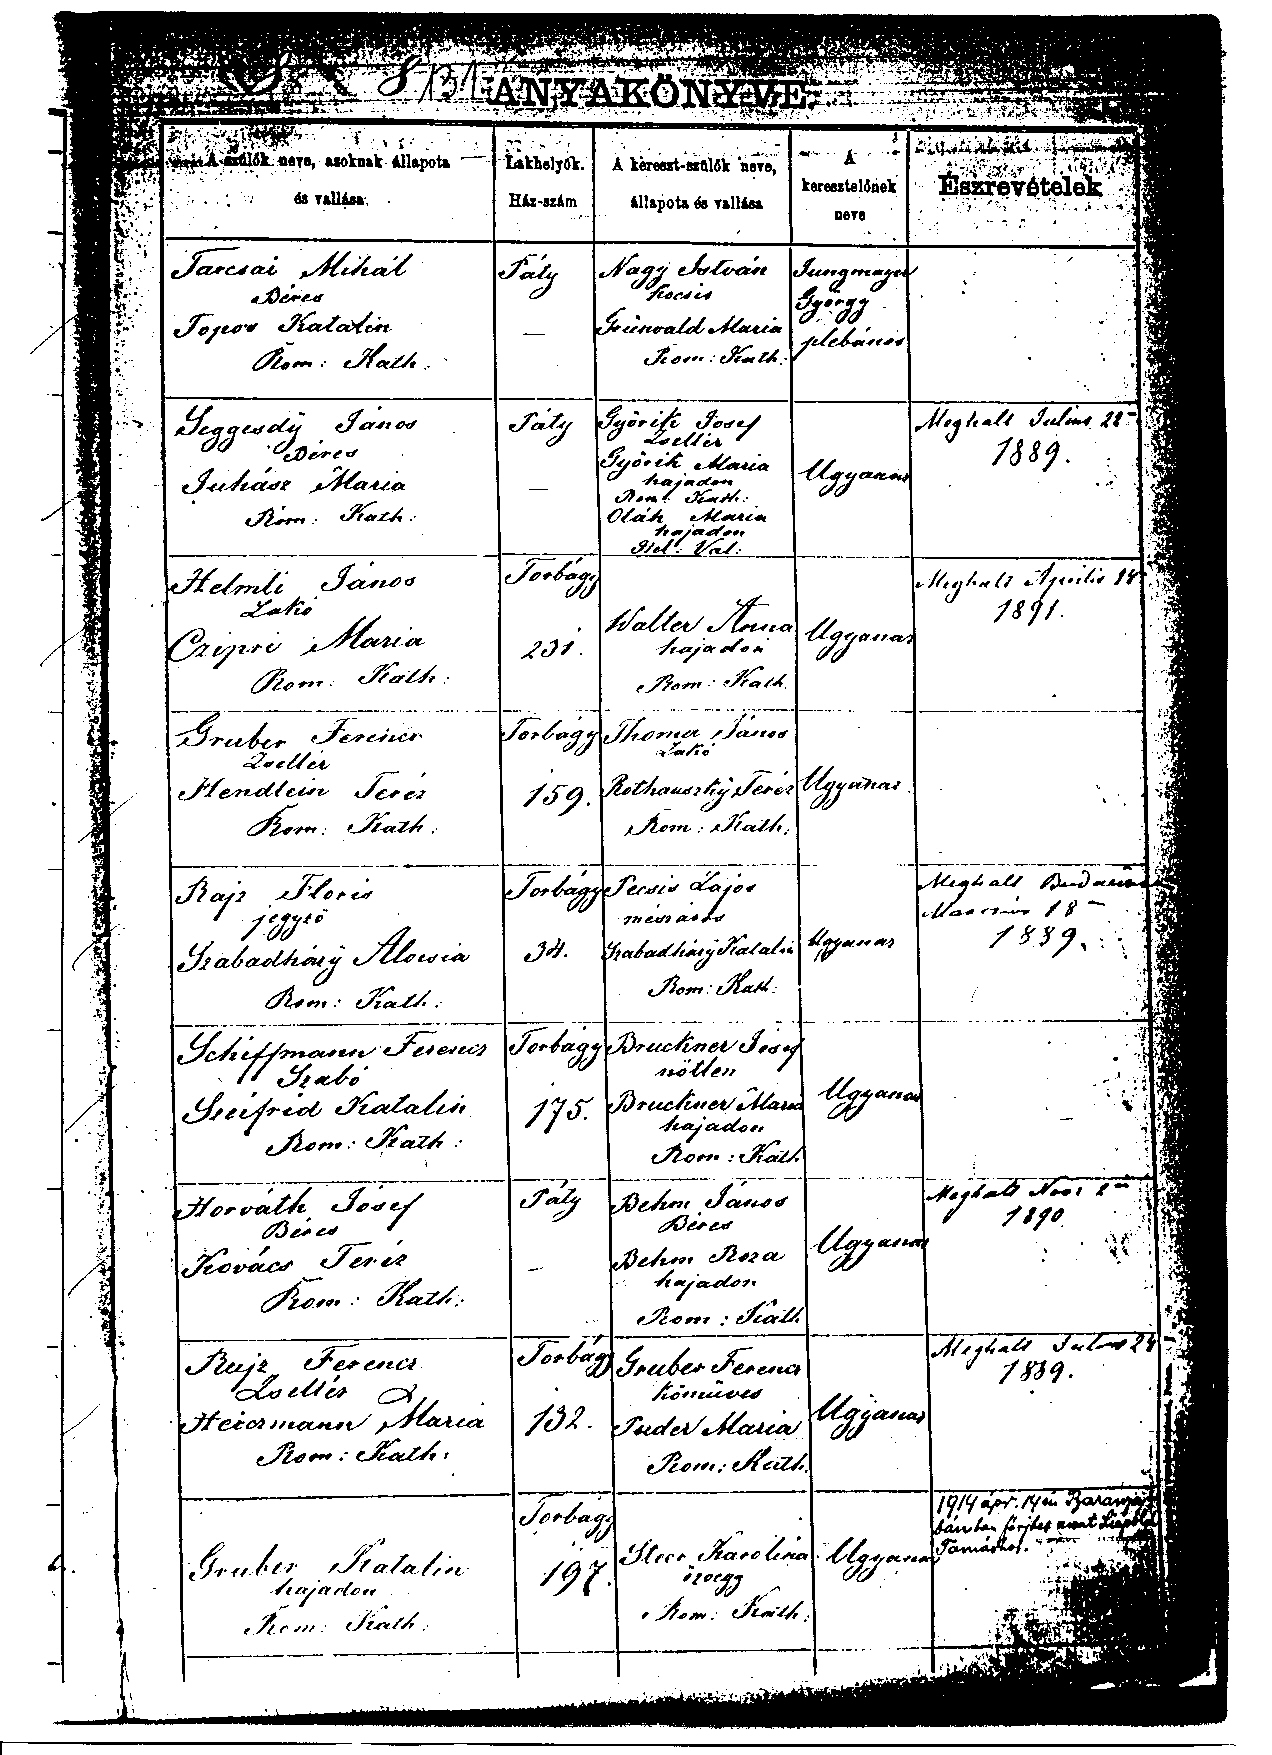 ANYAKÖNYVE.
A szülők neve, azoknak állapota
és vallása.
Lakhelyök.
Ház-szám
A kereszt-szülők neve,
állapota és vallása
A
keresztelőnek
neve
Észrevételek
Tarcsai Mihál
Béres
Topos Katalin
Rom: Kath:
Páty
—
Nagy István
kocsis
Grünvald Maria
Rom: Kath:
Jungmayer
György
plebános
Seggesdÿ János
Béres
Juhász Maria
Rom: Kath:
Páty
—
Györik Josef
Zsellér
Györik Maria
hajadon
Rom: Kath:
Oláh Maria
hajadon
Hel: Val:
Ugyanaz
Meghalt Julius 22
1889.
Helmli János
Lakó
Czipri Maria
Rom: Kath:
Torbágy
231.
Walter Anna
hajadon
Rom: Kath.
Ugyanaz
Meghalt Aprilis 18
1891.
Gruber Ferencz
Zsellér
Hendlein Teréz
Rom: Kath:
Torbágy
159.
Thoma János
Lakó
Rothauszkÿ Teréz
Rom: Kath:
Ugyanaz
Rajz Floris
jegyző
Szabadhárÿ Aloisia
Rom: Kath:
Torbágy
34.
Pecsis Lajos
mészáros
Szabadhárÿ Katalin
Rom: Kath:
Ugyanaz
Meghalt
18
1889.
Schiffmann Ferencz
Szabó
Seifrid Katalin
Rom: Kath:
Torbágy
175.
Bruckner Jósef
nőtlen
Bruckner Maria
hajadon
Rom: Kath.
Ugyanaz
Horváth Jósef
Béres
Kovács Teréz
Rom: Kath:
Páty
—
Behm János
Béres
Behm Roza
hajadon
Rom: Kath.
Ugyanaz
Meghalt Nov: 2
1890.
Rujz Ferencz
Zsellér
Heiermann Maria
Rom: Kath:
Torbágy
132.
Gruber Ferencz
kőmüves
Tuder Maria
Rom: Kath.
Ugyanaz
Meghalt Julius 24
1889.
Gruber Katalin
hajadon
Rom: Kath:
Torbágy
197.
Steer Karolina
özvegy
Rom: Kath:
Ugyanaz
1914 ápr. 14én
férjhez ment
Tamáshoz.